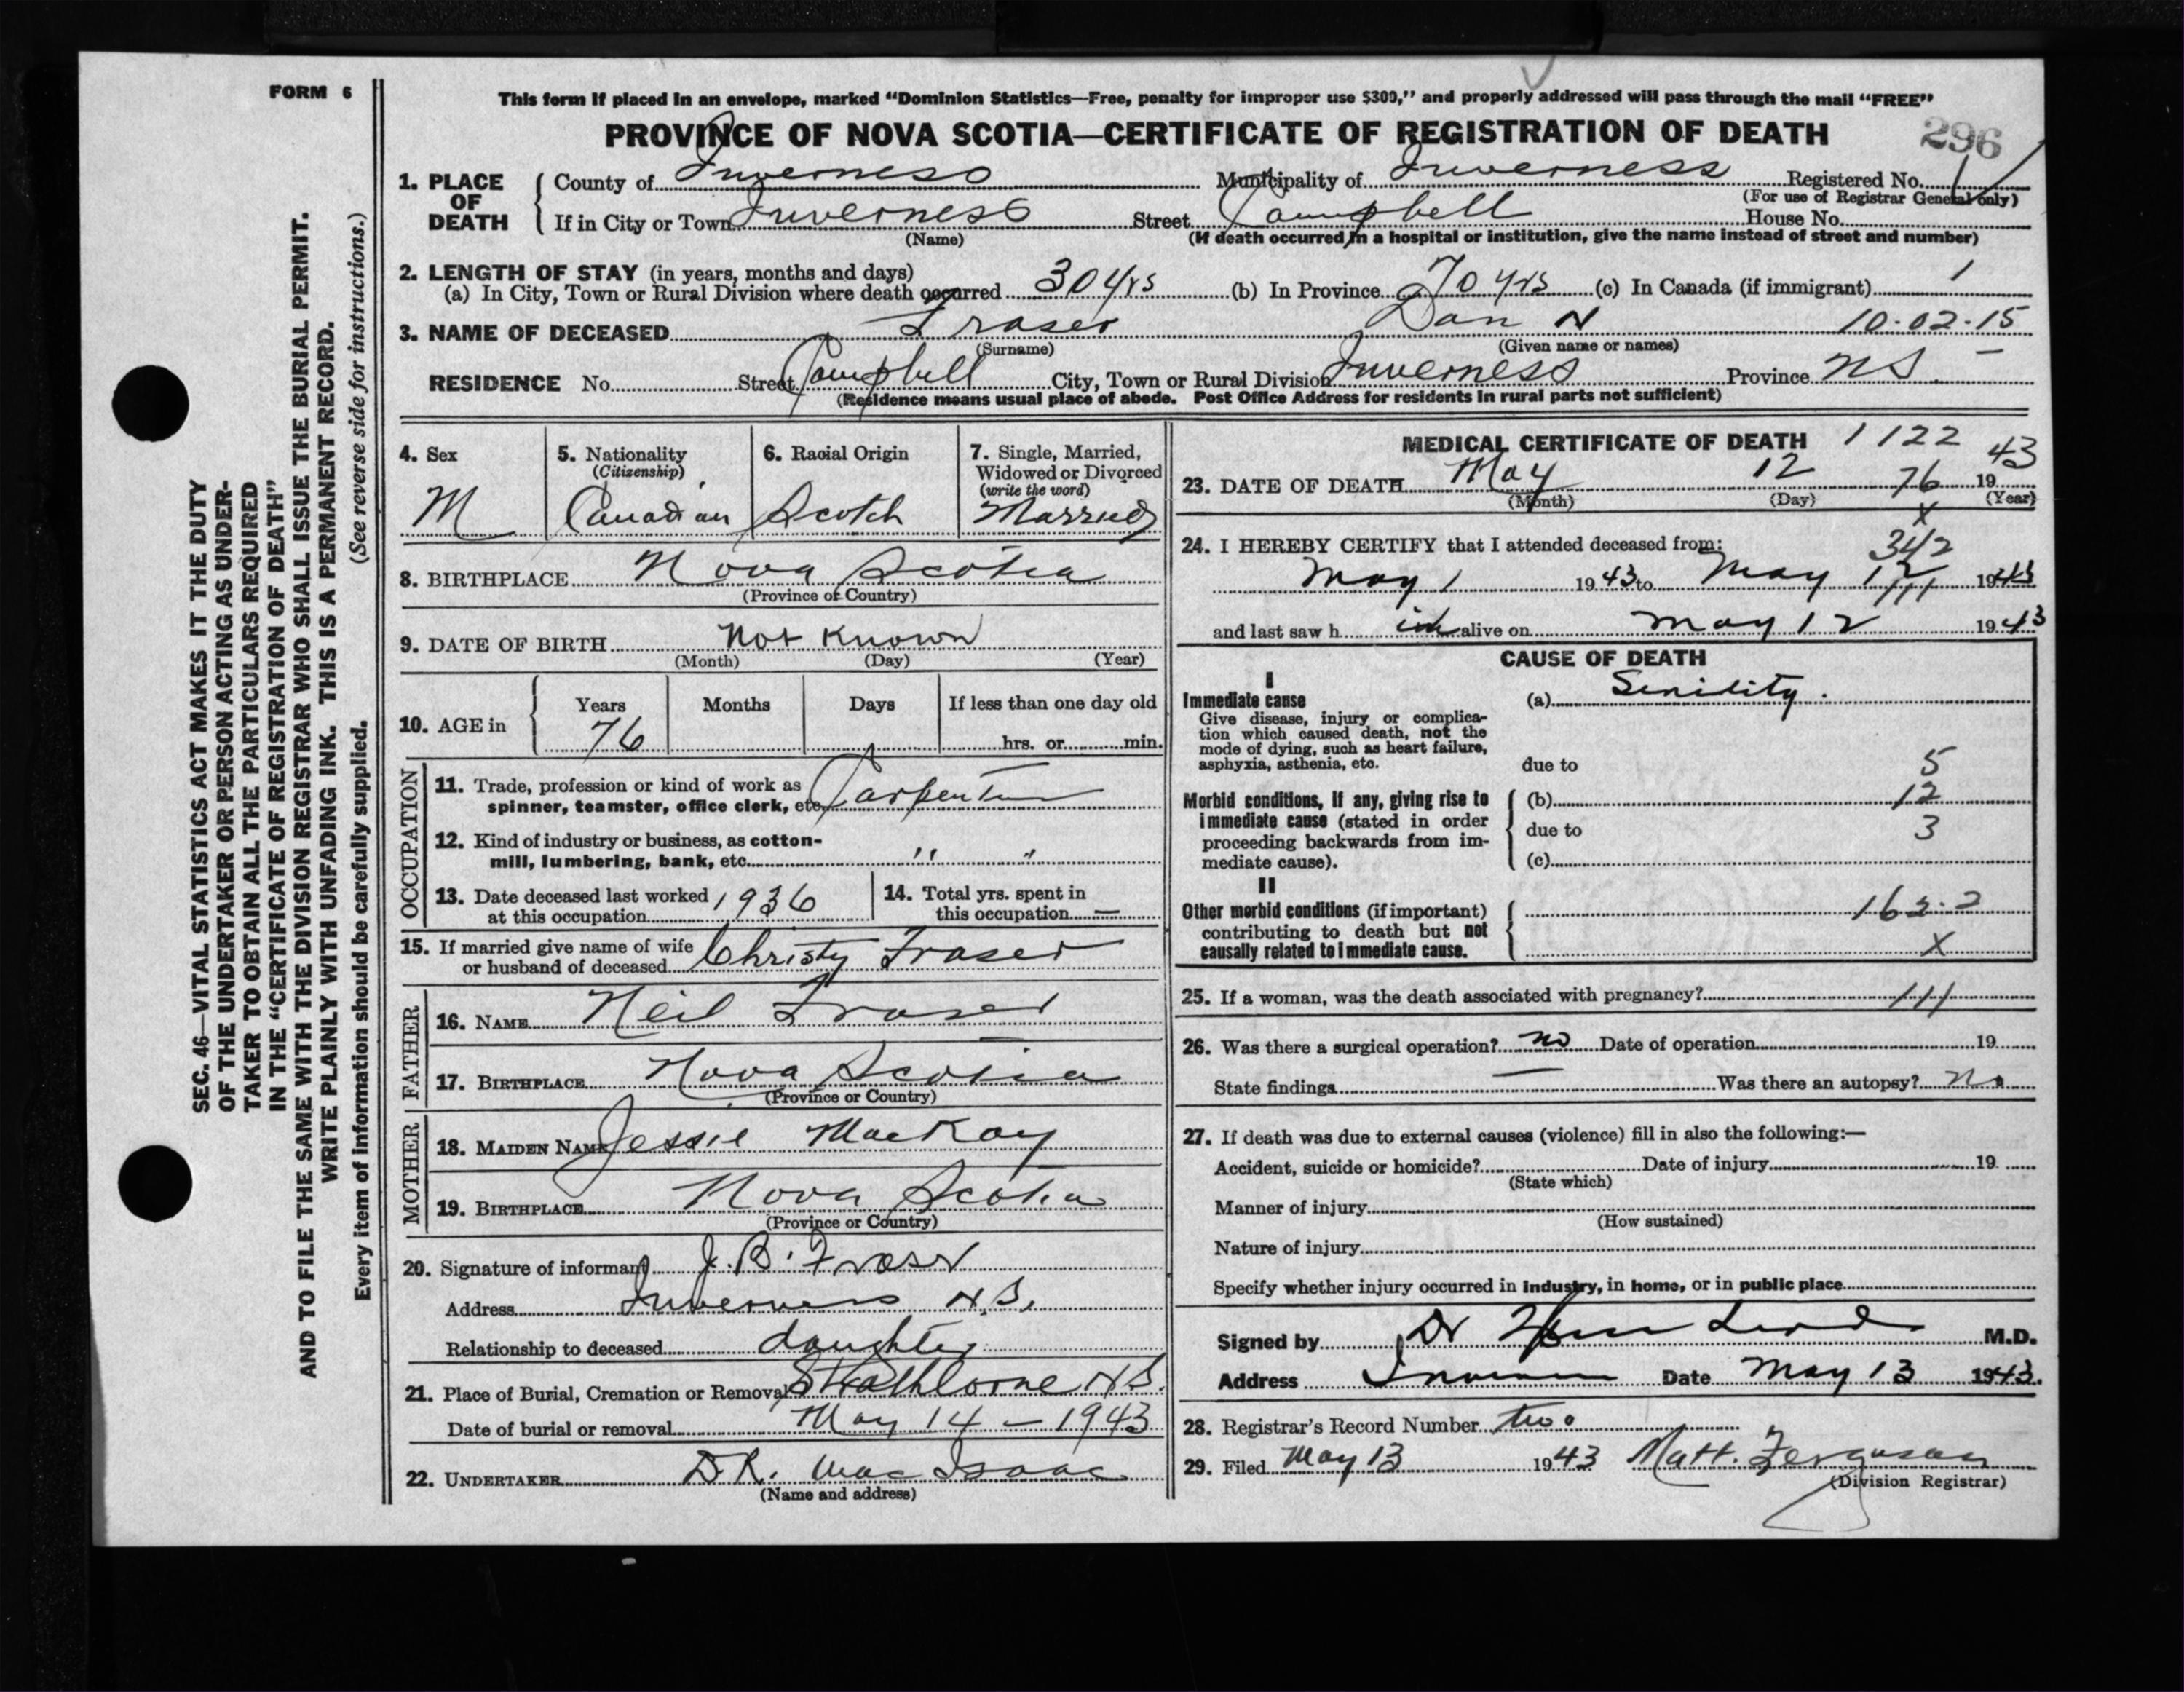 FORM 6
This form if placed in an envelope, marked "Dominion Statistics—Free, penalty for improper use $300," and properly addressed will pass through the mail "FREE"
PROVINCE OF NOVA SCOTIA—CERTIFICATE OF REGISTRATION OF DEATH
296
1. PLACE OF DEATH { County of Inverness Municipality of Inverness Registered No.
(For use of Registrar General only)
If in City or Town Inverness Street Campbell House No.
(Name) (If death occurred in a hospital or institution, give the name instead of street and number)
2. LENGTH OF STAY (in years, months and days)
(a) In City, Town or Rural Division where death occurred 30 yrs (b) In Province 70 yrs (c) In Canada (if immigrant) 1
3. NAME OF DECEASED Fraser Dan N 10-02-15
(Surname) (Given name or names)
RESIDENCE No. Street Campbell City, Town or Rural Division Inverness Province NS -
(Residence means usual place of abode. Post Office Address for residents in rural parts not sufficient)
4. Sex
M
5. Nationality
(Citizenship)
Canadian
6. Racial Origin
Scotch
7. Single, Married,
Widowed or Divorced
(write the word)
Married
8. BIRTHPLACE Nova Scotia
(Province or Country)
9. DATE OF BIRTH Not Known
(Month) (Day) (Year)
10. AGE in { Years Months Days If less than one day old
76 hrs. or min.
OCCUPATION
11. Trade, profession or kind of work as
spinner, teamster, office clerk, etc. Carpenter
12. Kind of industry or business, as cotton-
mill, lumbering, bank, etc. " "
13. Date deceased last worked
at this occupation 1936
14. Total yrs. spent in
this occupation —
15. If married give name of wife
or husband of deceased Christy Fraser
FATHER
16. NAME Neil Fraser
17. BIRTHPLACE Nova Scotia
(Province or Country)
MOTHER
18. MAIDEN NAME Jessie MacKay
19. BIRTHPLACE Nova Scotia
(Province or Country)
20. Signature of informant J. B. Fraser
Address Inverness N.S.
Relationship to deceased daughter
21. Place of Burial, Cremation or Removal Strathlorne N.S.
Date of burial or removal May 14 – 1943
22. UNDERTAKER D.R. MacIsaac
(Name and address)
MEDICAL CERTIFICATE OF DEATH 1122
23. DATE OF DEATH May 12 76 19 43
(Month) (Day) (Year)
X
24. I HEREBY CERTIFY that I attended deceased from: 342
May 1 1943 to May 12 1943
and last saw h im alive on May 12 1943
CAUSE OF DEATH
I
Immediate cause
Give disease, injury or complica-
tion which caused death, not the
mode of dying, such as heart failure,
asphyxia, asthenia, etc.
(a) Senility.
due to
5
Morbid conditions, if any, giving rise to
immediate cause (stated in order
proceeding backwards from im-
mediate cause).
(b) 12
due to 3
(c)
II
Other morbid conditions (if important)
contributing to death but not
causally related to immediate cause.
162.2
X
25. If a woman, was the death associated with pregnancy? 111
26. Was there a surgical operation? no Date of operation 19
State findings — Was there an autopsy? No
27. If death was due to external causes (violence) fill in also the following:—
Accident, suicide or homicide? Date of injury 19
(State which)
Manner of injury
(How sustained)
Nature of injury
Specify whether injury occurred in industry, in home, or in public place
Signed by Dr M.D.
Address Date May 13 1943.
28. Registrar's Record Number two
29. Filed May 13 1943 Matt. Ferguson
(Division Registrar)
SEC. 46—VITAL STATISTICS ACT MAKES IT THE DUTY
OF THE UNDERTAKER OR PERSON ACTING AS UNDER-
TAKER TO OBTAIN ALL THE PARTICULARS REQUIRED
IN THE "CERTIFICATE OF REGISTRATION OF DEATH"
AND TO FILE THE SAME WITH THE DIVISION REGISTRAR WHO SHALL ISSUE THE BURIAL PERMIT.
WRITE PLAINLY WITH UNFADING INK. THIS IS A PERMANENT RECORD.
Every item of information should be carefully supplied. (See reverse side for instructions.)